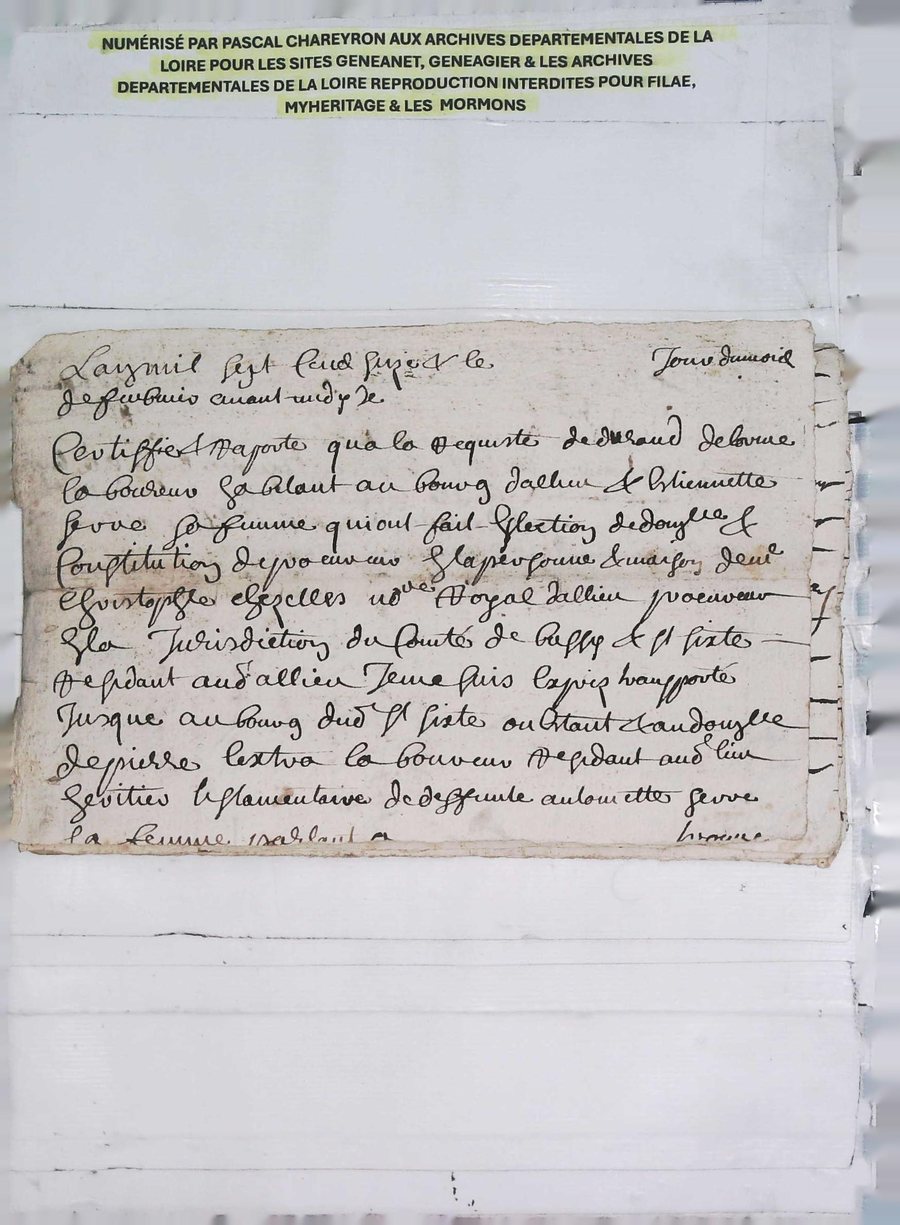 NUMÉRISÉ PAR PASCAL CHAREYRON AUX ARCHIVES DEPARTEMENTALES DE LA
LOIRE POUR LES SITES GENEANET, GENEAGIER & LES ARCHIVES
DEPARTEMENTALES DE LA LOIRE REPRODUCTION INTERDITES POUR FILAE,
MYHERITAGE & LES MORMONS
Lan mil sept Cend & le Jour du mois
avant midy Je
Certiffie & Raporte qua la Requiste de durand delorme
laboureur habitant au bourg dallieu & Estiennette
serre sa femme qui ont fait Eslection de domille &
Constitution de procureur En la personne & maison de me
Christophle chezelles nore Royal dallieu procureur
En la Jurisdiction du Comté de bussy & st sixte
Residant aud allieu Je me suis Expres transporté
Jusque au bourg dud st sixte ou Estant & au domille
de pierre lextra laboureur Residant aud lieu
heritier testamentaire de deffunte antoinette serre
sa femme parlant a